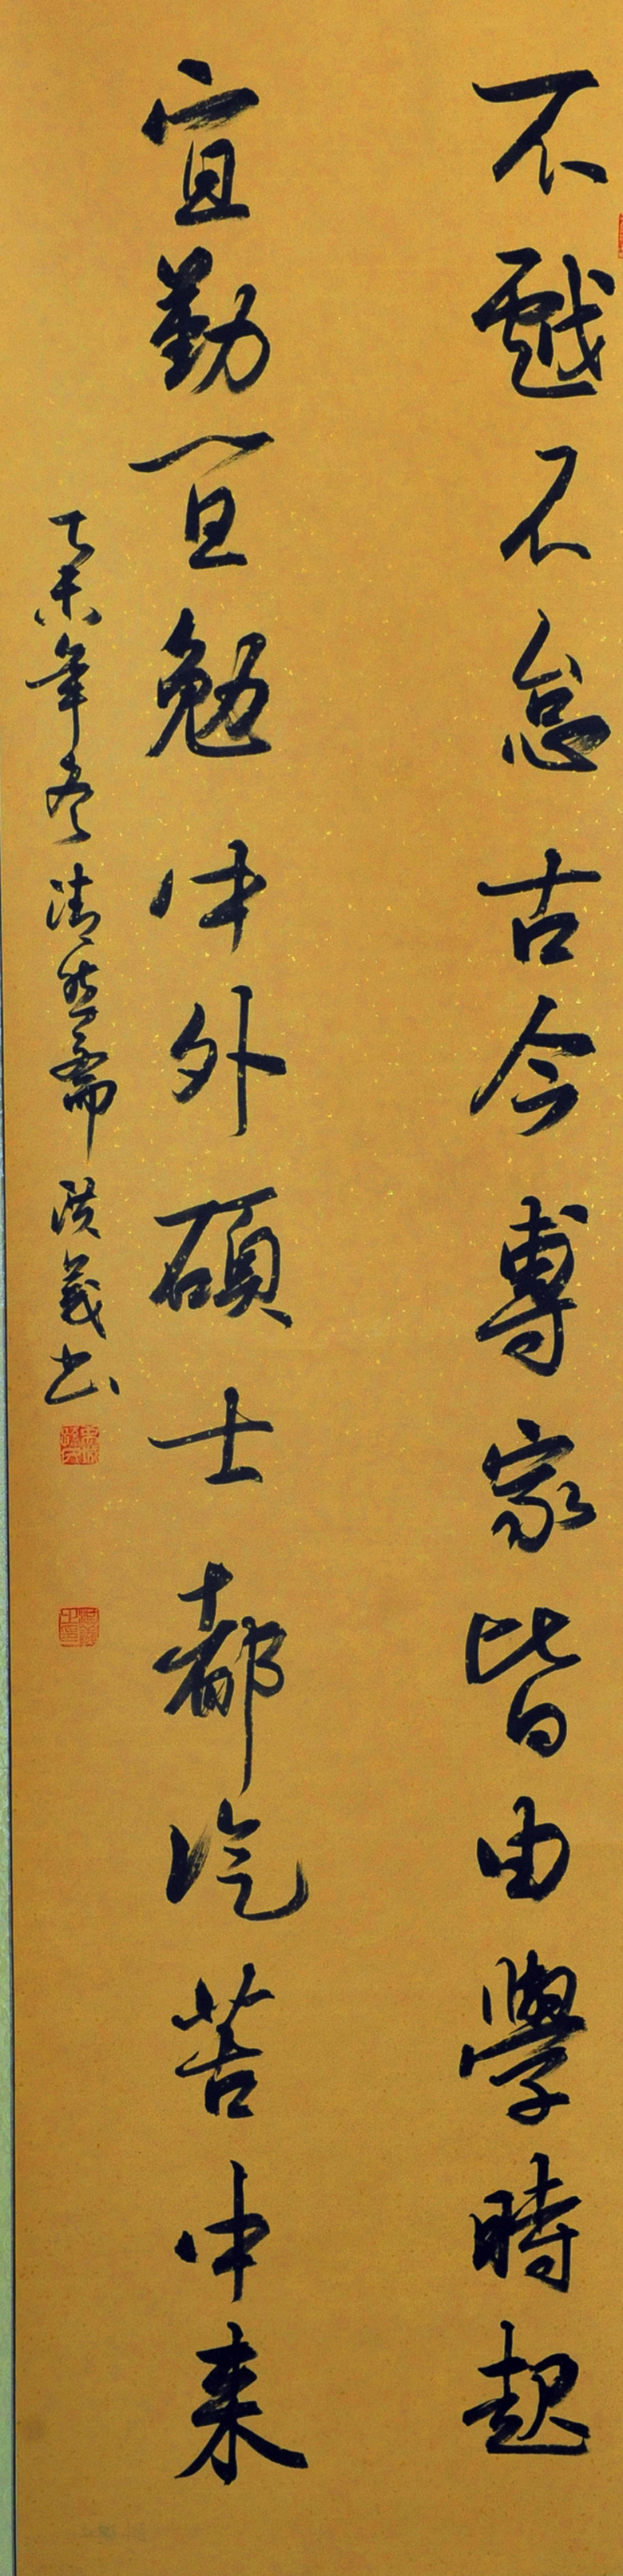 不戲不怠古今專家皆由學時起
宜勤宜勉中外碩士都從苦中来
乙未年冬清 齋洪義书